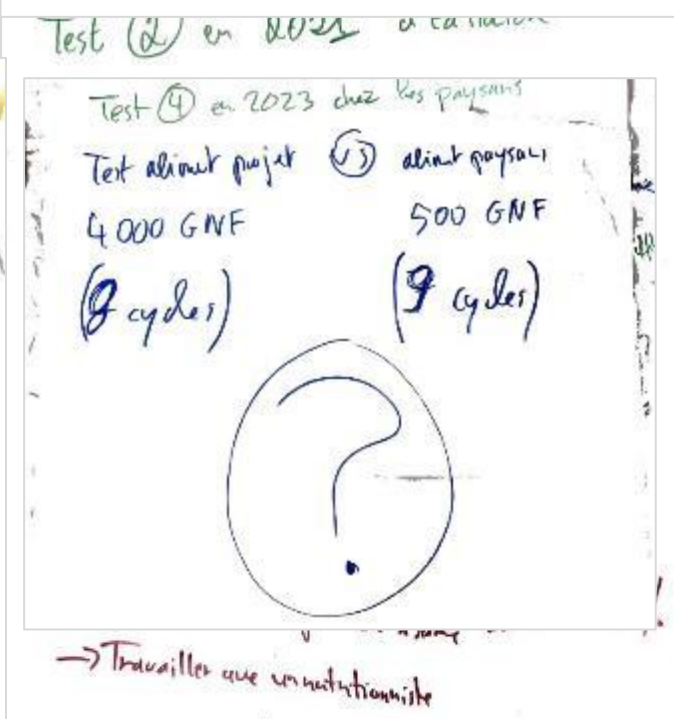 Test (2) en 2021 à la station
Test (4) en 2023 chez les paysans
Test aliment projet (VS) aliment paysans
4000 GNF 500 GNF
(8 cycles) (9 cycles)
?
→ Travailler avec un nutritionniste